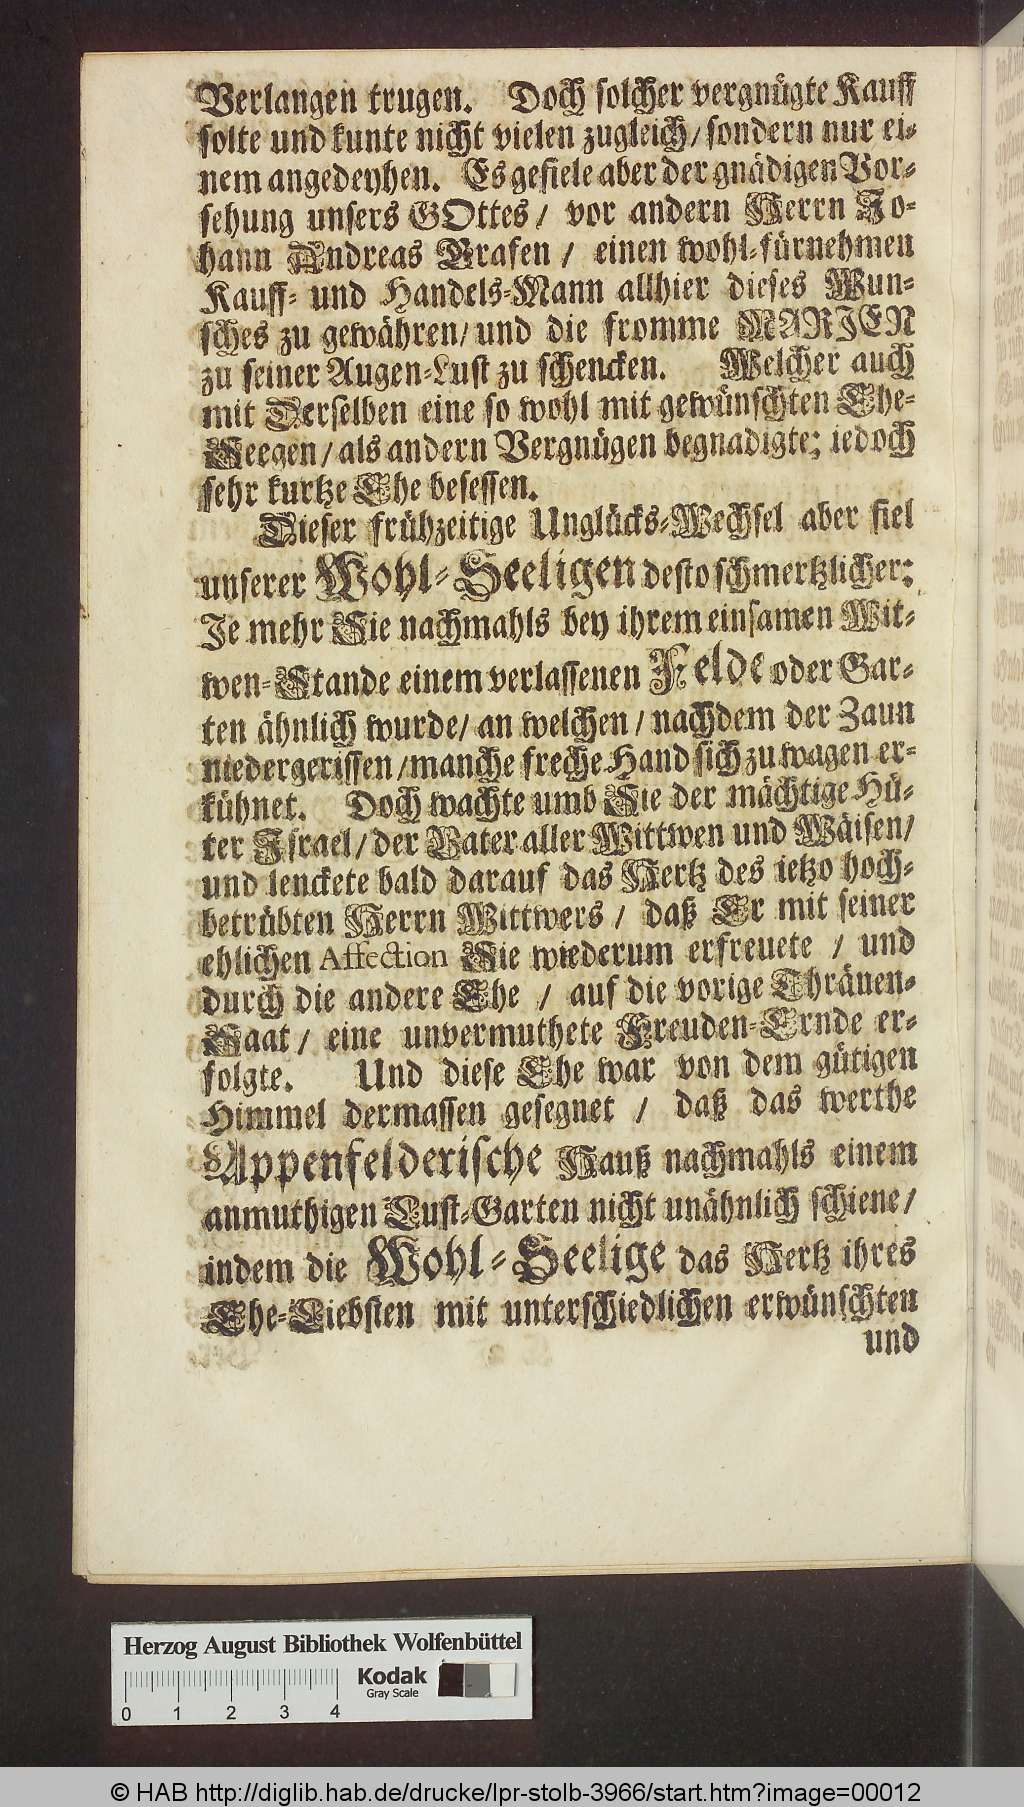 Verlangen trugen. Doch solcher vergnügte Kauff
solte und kunte nicht vielen zugleich/ sondern nur ei-
nem angedeyhen. Es gefiele aber der gnädigen Vor-
sehung unsers GOttes/ vor andern Herrn Jo-
hann Andreas Brafen/ einen wohl-fürnehmen
Kauff- und Handels-Mann allhier dieses Wun-
sches zu gewähren/ und die fromme MARJEN
zu seiner Augen-Lust zu schencken. Welcher auch
mit Derselben eine so wohl mit gewünschten Ehe-
Seegen/ als andern Vergnügen begnadigte; iedoch
sehr kurtze Ehe besessen.
Dieser frühzeitige Unglücks-Wechsel aber fiel
unserer Wohl-Seeligen desto schmertzlicher;
Je mehr Sie nachmahls bey ihrem einsamen Wit-
wen-Stande einem verlassenen Felde oder Gar-
ten ähnlich wurde/ an welchen/ nachdem der Zaun
niedergerissen/ manche freche Hand sich zu wagen er-
kühnet. Doch wachte umb Sie der mächtige Hü-
ter Israel/ der Vater aller Wittwen und Wäisen/
und lenckete bald darauf das Hertz des ietzo hoch-
betrübten Herrn Wittwers/ daß Er mit seiner
ehlichen Affection Sie wiederum erfreuete/ und
durch die andere Ehe/ auf die vorige Thränen-
Saat/ eine unvermuthete Freuden-Ernde er-
folgte. Und diese Ehe war von dem gütigen
Himmel dermassen gesegnet/ daß das werthe
Appenfelderische Hauß nachmahls einem
anmuthigen Lust-Garten nicht unähnlich schiene/
indem die Wohl-Seelige das Hertz ihres
Ehe-Liebsten mit unterschiedlichen erwünschten
und
Herzog August Bibliothek Wolfenbüttel
Kodak
Gray Scale
0 1 2 3 4
© HAB http://diglib.hab.de/drucke/lpr-stolb-3966/start.htm?image=00012